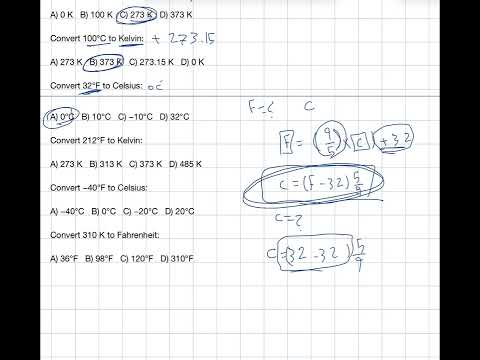 A) 0 K B) 100 K C) 273 K D) 373 K
Convert 100°C to Kelvin: + 273.15
A) 273 K B) 373 K C) 273.15 K D) 0 K
Convert 32°F to Celsius: 0°C
A) 0°C B) 10°C C) −10°C D) 32°C
Convert 212°F to Kelvin:
A) 273 K B) 313 K C) 373 K D) 485 K
Convert −40°F to Celsius:
A) −40°C B) 0°C C) −20°C D) 20°C
Convert 310 K to Fahrenheit:
A) 36°F B) 98°F C) 120°F D) 310°F
F=? C
F = (9/5) × C + 32
C = (F − 32) 5/9
C = ?
C = (32 − 32) 5/9